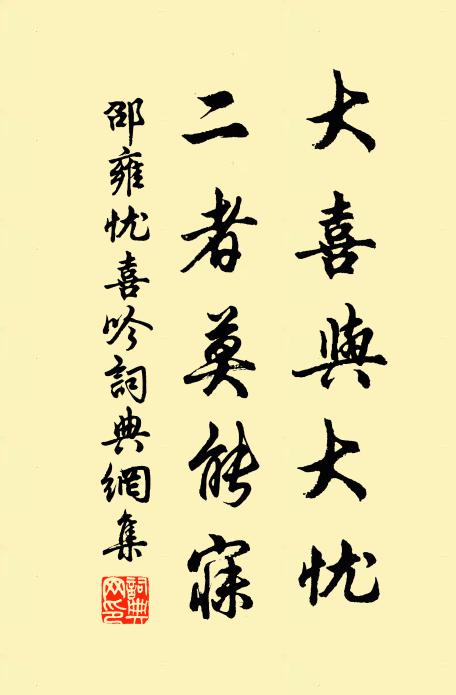 大喜與大忧
二者莫能寐
邵雍忧喜吟詞典網集
詞典网印